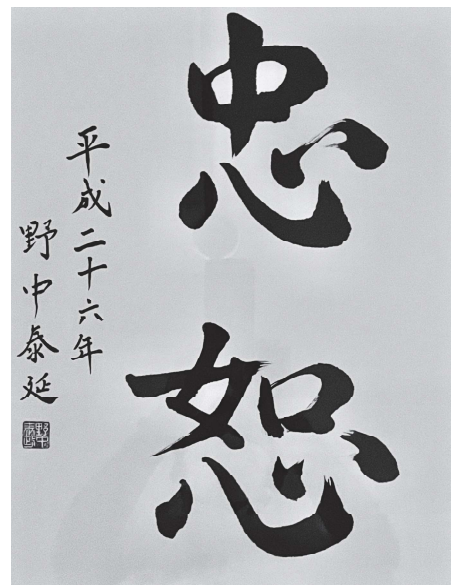 忠恕
平成二十六年
野中泰延